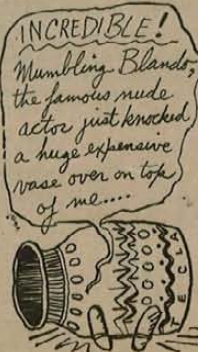 INCREDIBLE!
Mumbling Blando,
the famous nude
actor just knocked
a huge expensive
vase over on top
of me....
TECLA